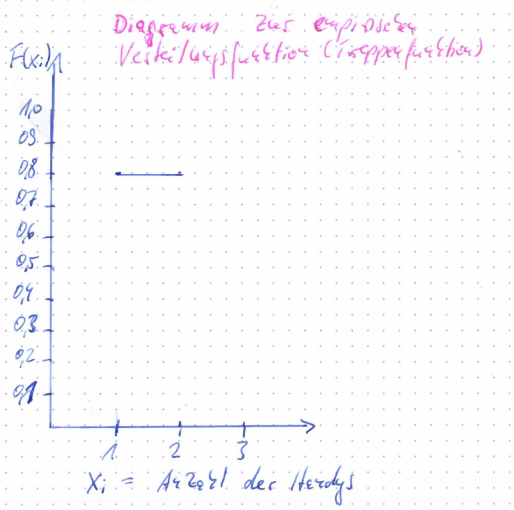 Diagramm zur empirischen
Verteilungsfunktion (Treppenfunktion)
F(xi)
1,0
0,9
0,8
0,7
0,6
0,5
0,4
0,3
0,2
0,1
1 2 3
Xi = Anzahl der Handys